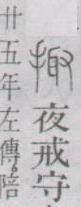 掫夜戒守
廿五年左傳陪